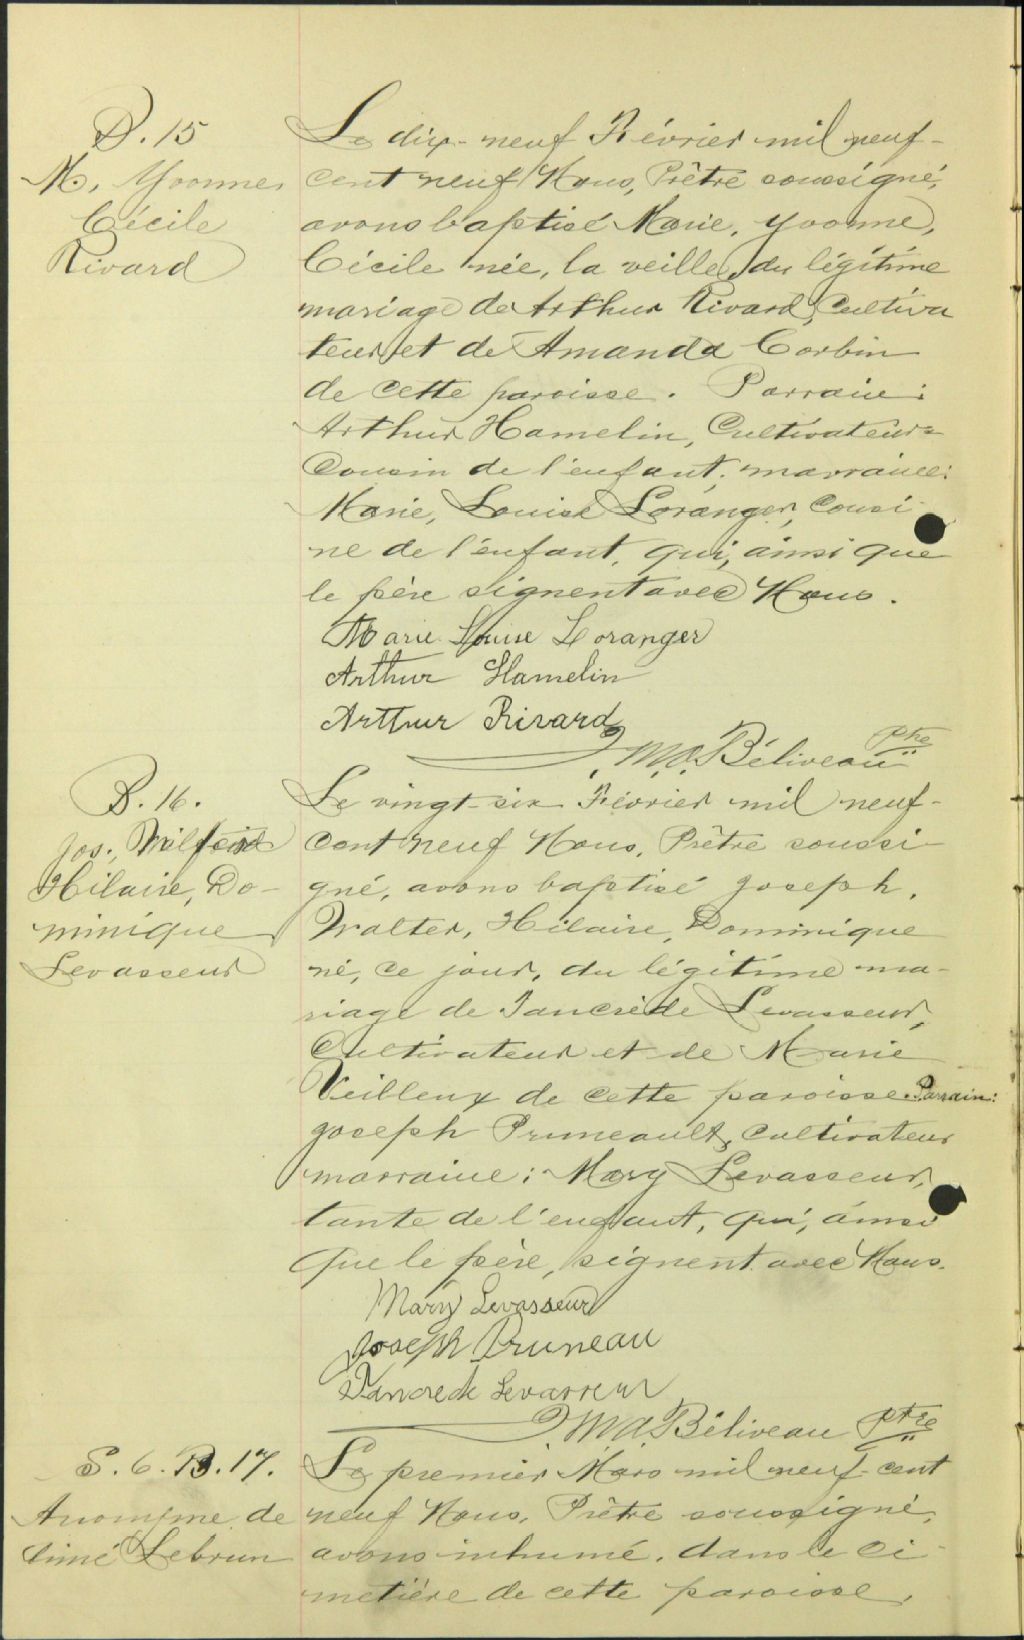 B. 15
M. Yvonne
Cécile
Rivard
Le dix-neuf Février mil neuf-
cent neuf Nous, Prêtre soussigné,
avons baptisé Marie, Yvonne,
Cécile née, la veille, du légitime
mariage de Arthur Rivard, Cultiva
teur et de Amanda Corbin
de cette paroisse. Parrain:
Arthur Hamelin, Cultivateur
Cousin de l'enfant, marraine:
Marie, Louise Loranger, Cousi
ne de l'enfant, qui, ainsi que
le père signent avec Nous.
Marie Louise Loranger
Arthur Hamelin
Arthur Rivard
M.A. Béliveau Ptre
B. 16.
Jos., Wilfrid
Hilaire, Do-
minique
Levasseur
Le vingt-six Février mil neuf-
cent neuf Nous, Prêtre soussi-
gné, avons baptisé Joseph,
Walter, Hilaire, Dominique
né, ce jour, du légitime ma-
riage de Tancrède Levasseur,
Cultivateur et de Marie
Veilleux de cette paroisse. Parrain:
Joseph Pruneault, Cultivateur
marraine: Mary Levasseur,
tante de l'enfant, qui, ainsi
que le père, signent avec Nous.
Mary Levasseur
Joseph Pruneau
Tancrede Levasseur
M.A. Béliveau Ptre
S. 6. B. 17.
Anonyme de
Aimé Lebrun
Le premier Mars mil neuf-cent
neuf Nous, Prêtre soussigné,
avons inhumé, dans le ci-
metière de cette paroisse,